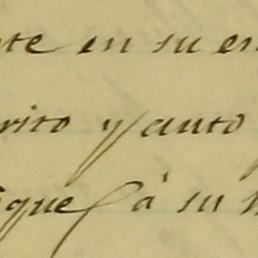 te en su en
rito y auto
que à su